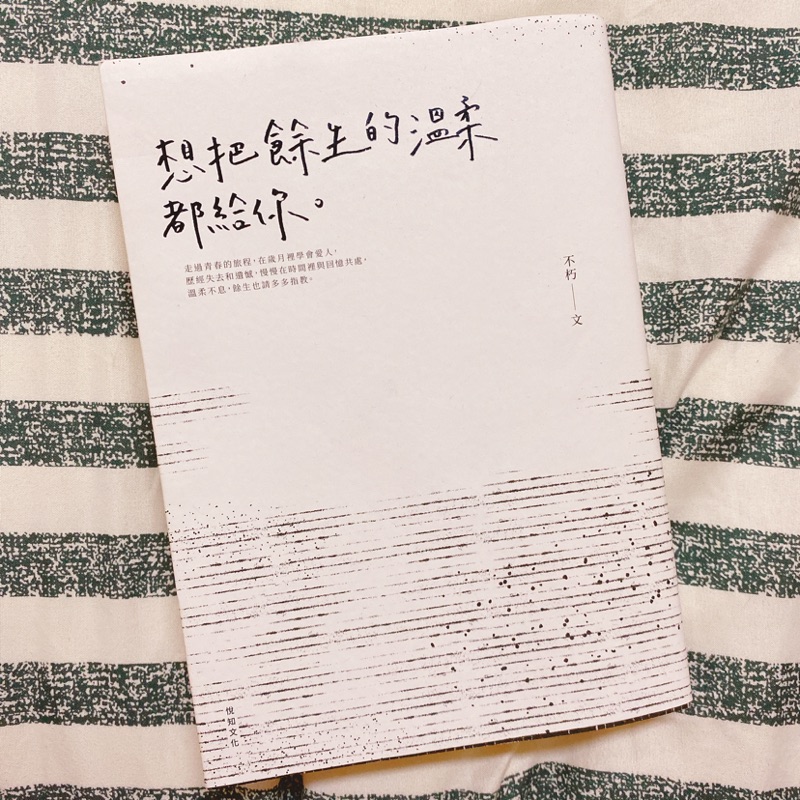 想把餘生的溫柔
都給你。
走過青春的旅程，在歲月裡學會愛人，
歷經失去和遺憾，慢慢在時間裡與回憶共處，
溫柔不息，餘生也請多多指教。
不朽——文
悅知文化